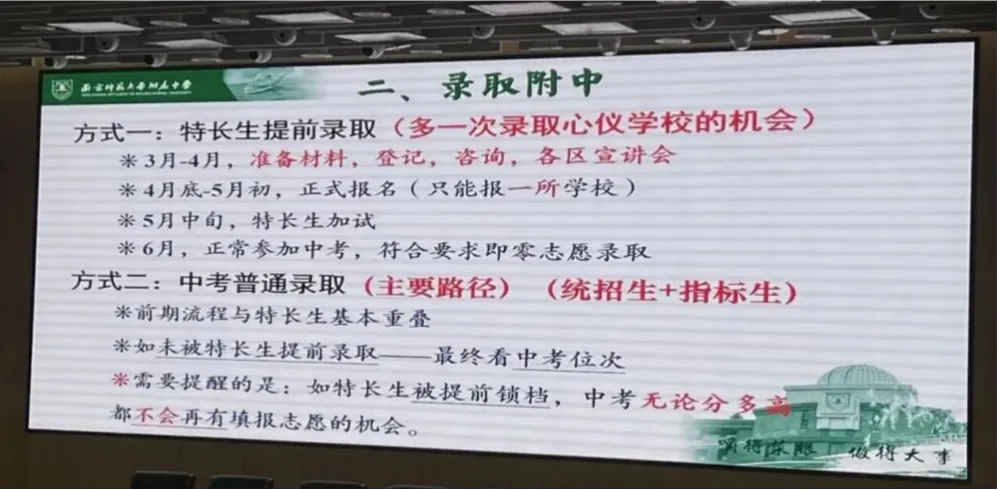 南京师范大学附属中学
二、录取附中
方式一：特长生提前录取（多一次录取心仪学校的机会）
※3月-4月，准备材料，登记，咨询，各区宣讲会
※4月底-5月初，正式报名（只能报一所学校）
※5月中旬，特长生加试
※6月，正常参加中考，符合要求即零志愿录取
方式二：中考普通录取（主要路径）（统招生+指标生）
※前期流程与特长生基本重叠
※如未被特长生提前录取——最终看中考位次
※需要提醒的是：如特长生被提前锁档，中考无论分多高
都不会再有填报志愿的机会。
嚼得菜根 做得大事